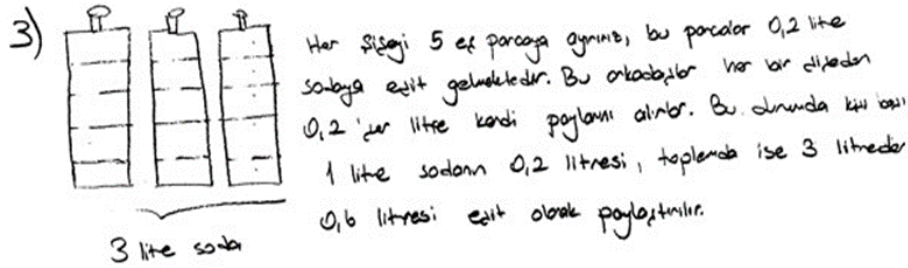 3)
Her şişeyi 5 eş parçaya ayırırız, bu parçalar 0,2 litre
sodaya eşit gelmektedir. Bu arkadaşlar her bir şişeden
0,2'şer litre kendi paylarını alırlar. Bu durumda kişi başı
1 litre sodanın 0,2 litresi, toplamda ise 3 litreden
0,6 litresi eşit olarak paylaştırılır.
3 litre soda